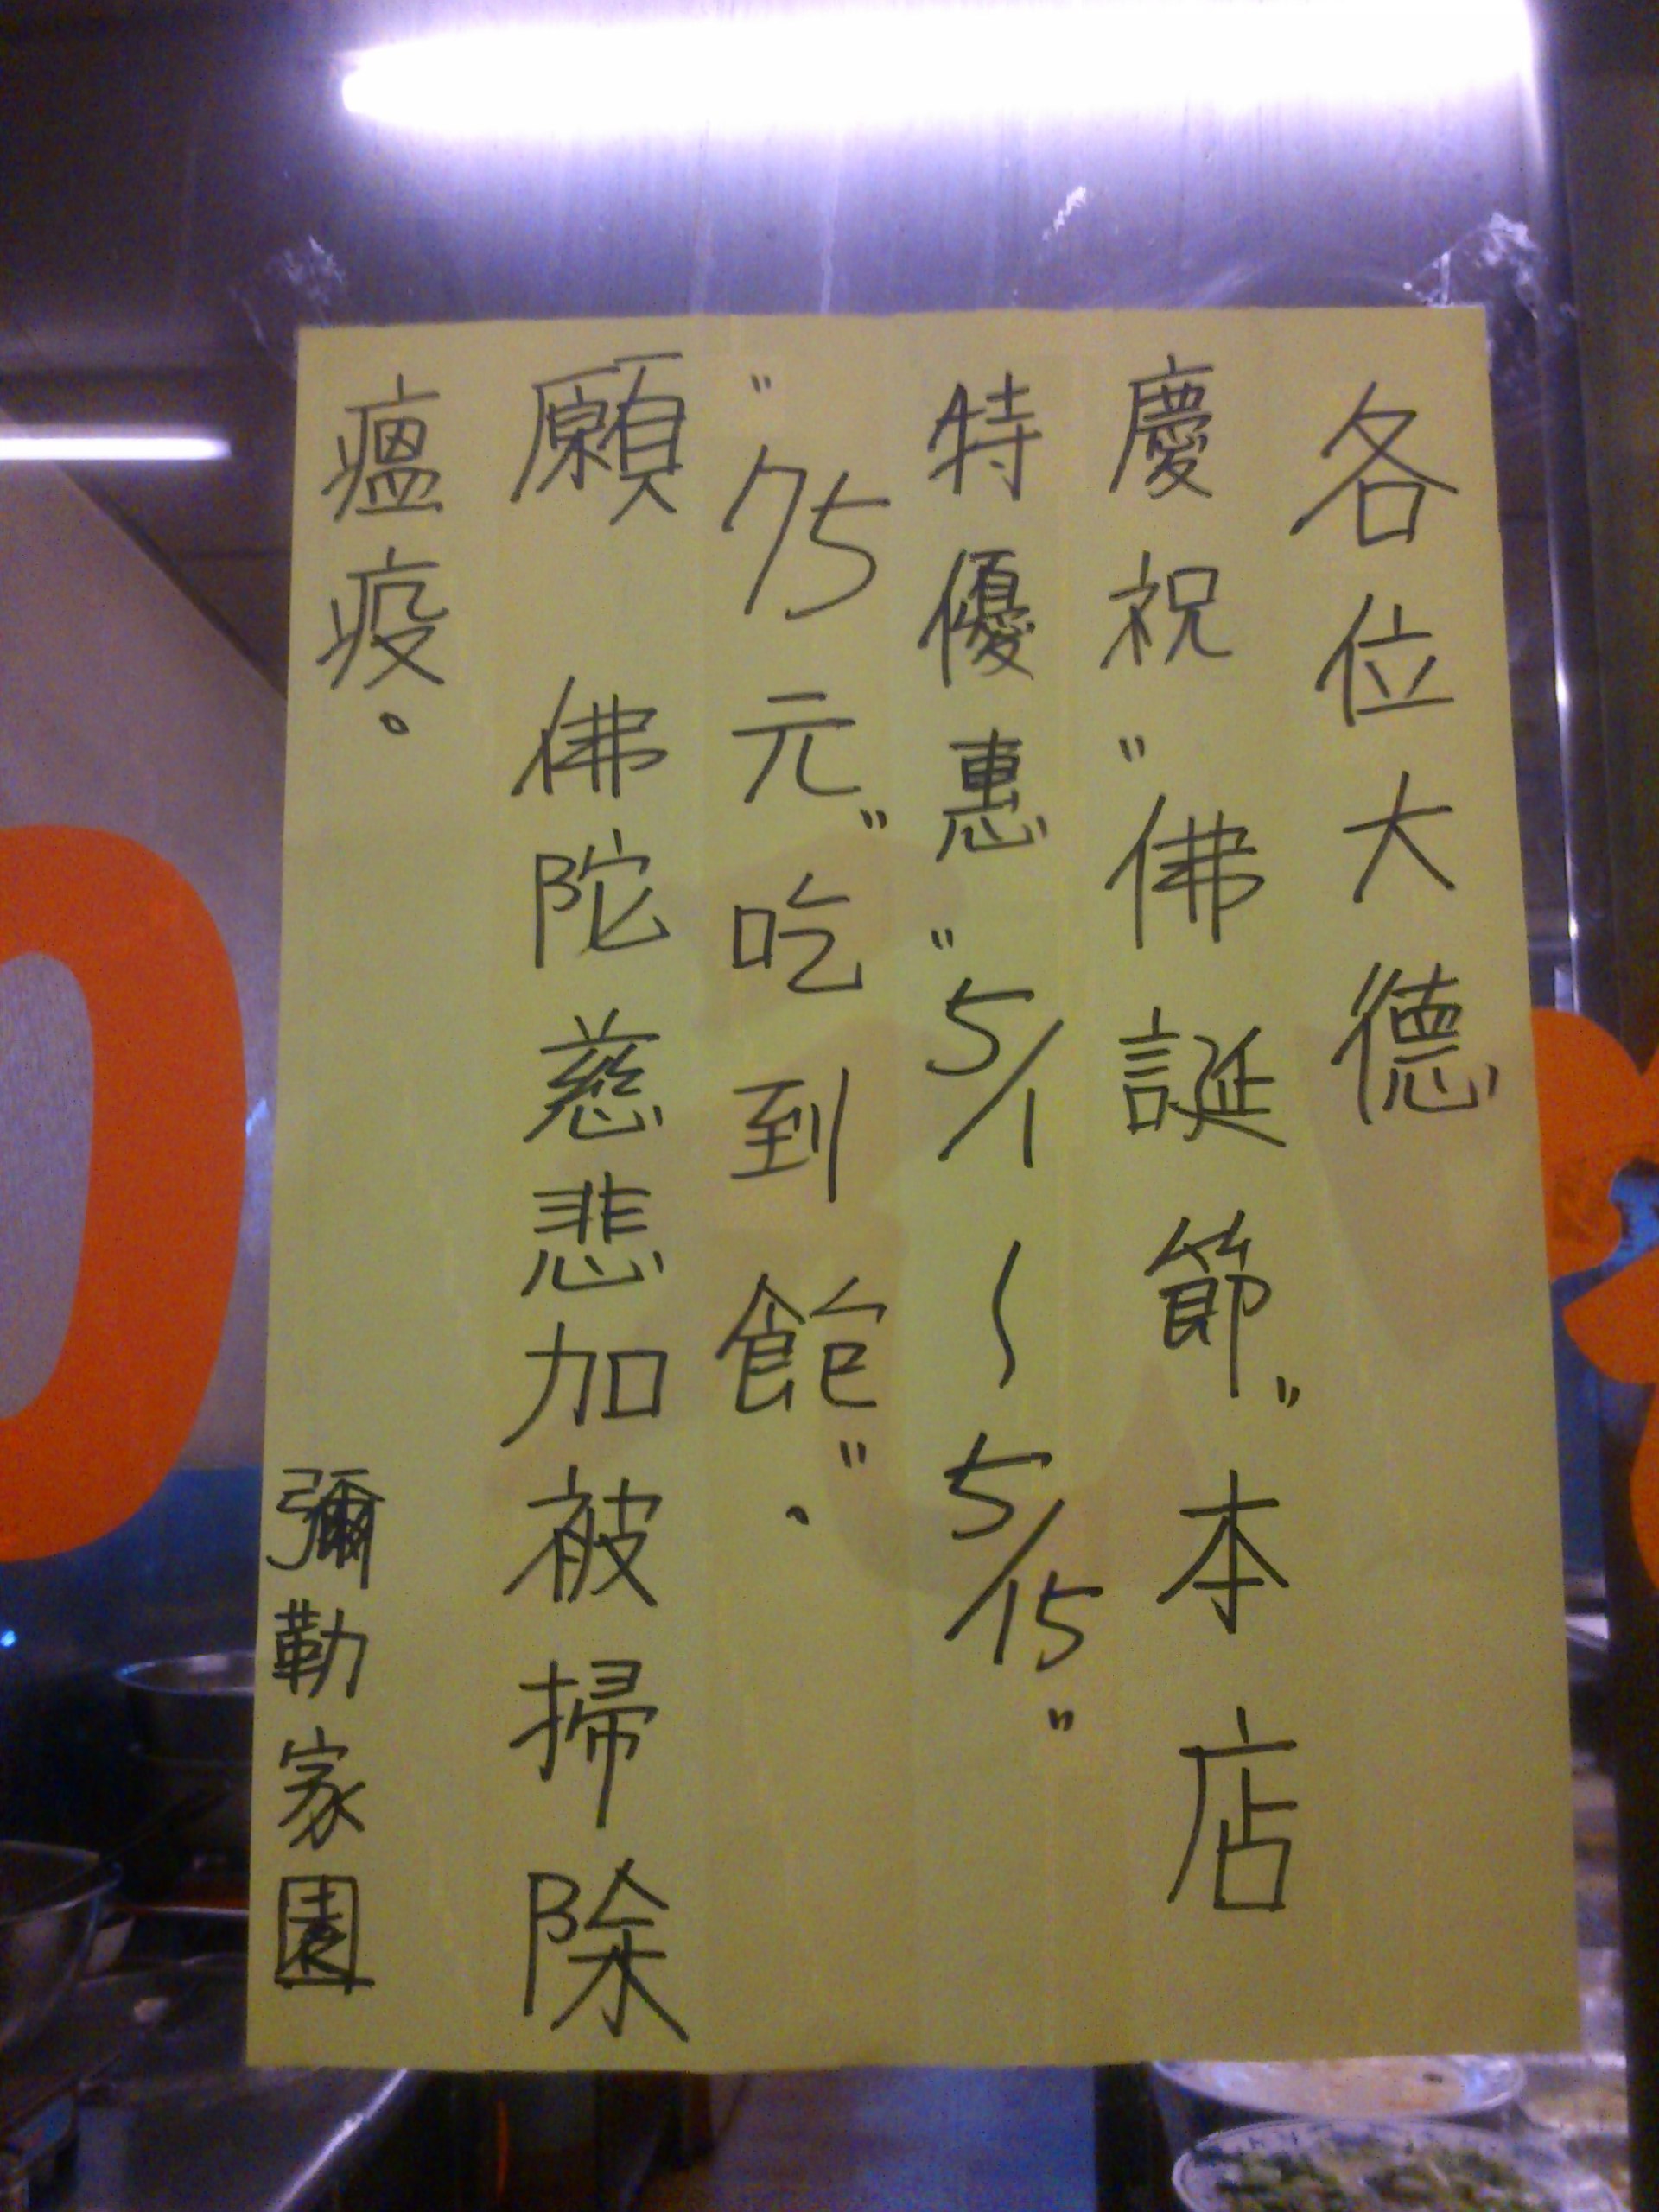 各位大德
慶祝"佛誕節"本店
特優惠"5/1~5/15"
"75元"吃到飽"．
願 佛陀慈悲加被掃除
瘟疫。
彌勒家園